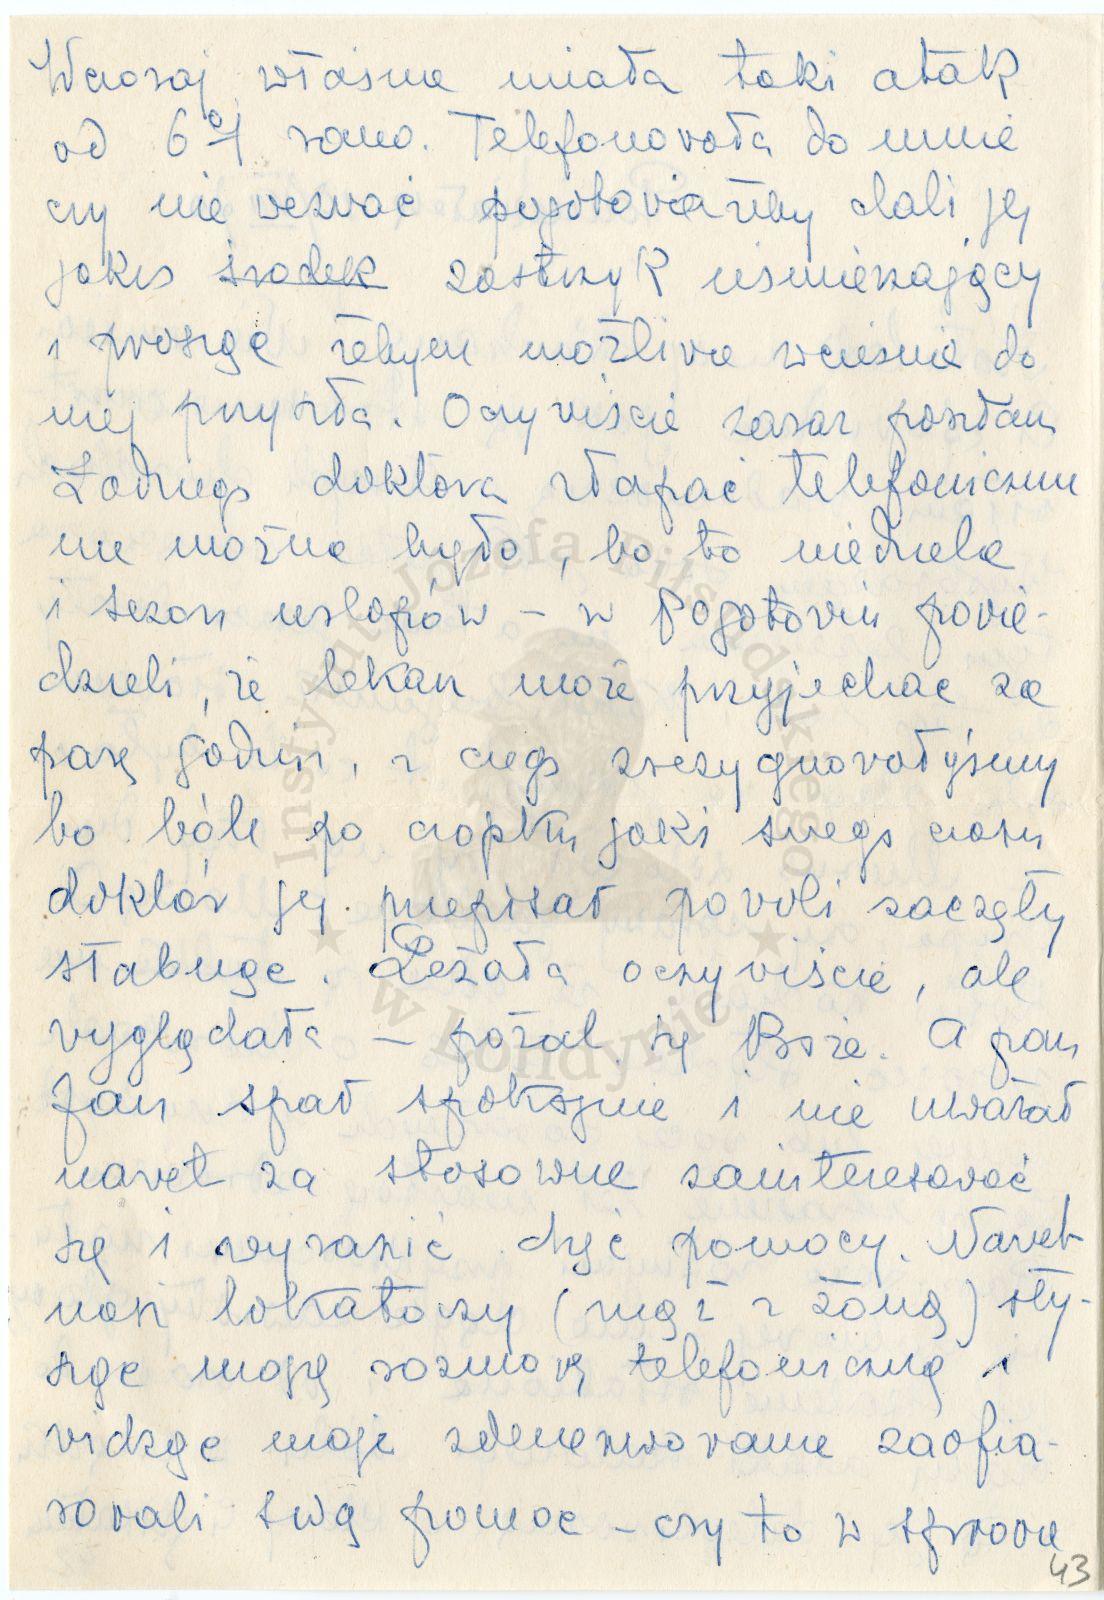 Wczoraj właśnie miała taki atak
od 6ej rano. Telefonowała do mnie
czy nie wezwać pogotowia żeby dali jej
jakiś środek zastrzyk uśmierzający
i prosząc żebym możliwie wcześnie do
niej przyszła. Oczywiście zaraz poszłam
Żadnego doktora złapać telefonicznie
nie można było, bo to niedziela
i sezon urlopów – w Pogotowiu powie-
dzieli, że lekarz może przyjechać za
parę godzin, z czego zrezygnowałyśmy
bo bóle po czopku jaki swego czasu
doktór jej przepisał powoli zaczęły
słabnąć. Leżała oczywiście, ale
wyglądała – pożal się Boże. A pan
Jan spał spokojnie i nie uważał
nawet za stosowne zainteresować
się i wyrazić chęć pomocy. Nawet
nasi lokatorzy (mąż z żoną) sły-
sząc moją rozmowę telefoniczną i
widząc moje zdenerwowanie zaofia-
rowali swą pomoc – czy to w sprawie
43
Instytut Józefa Piłsudskiego
w Londynie